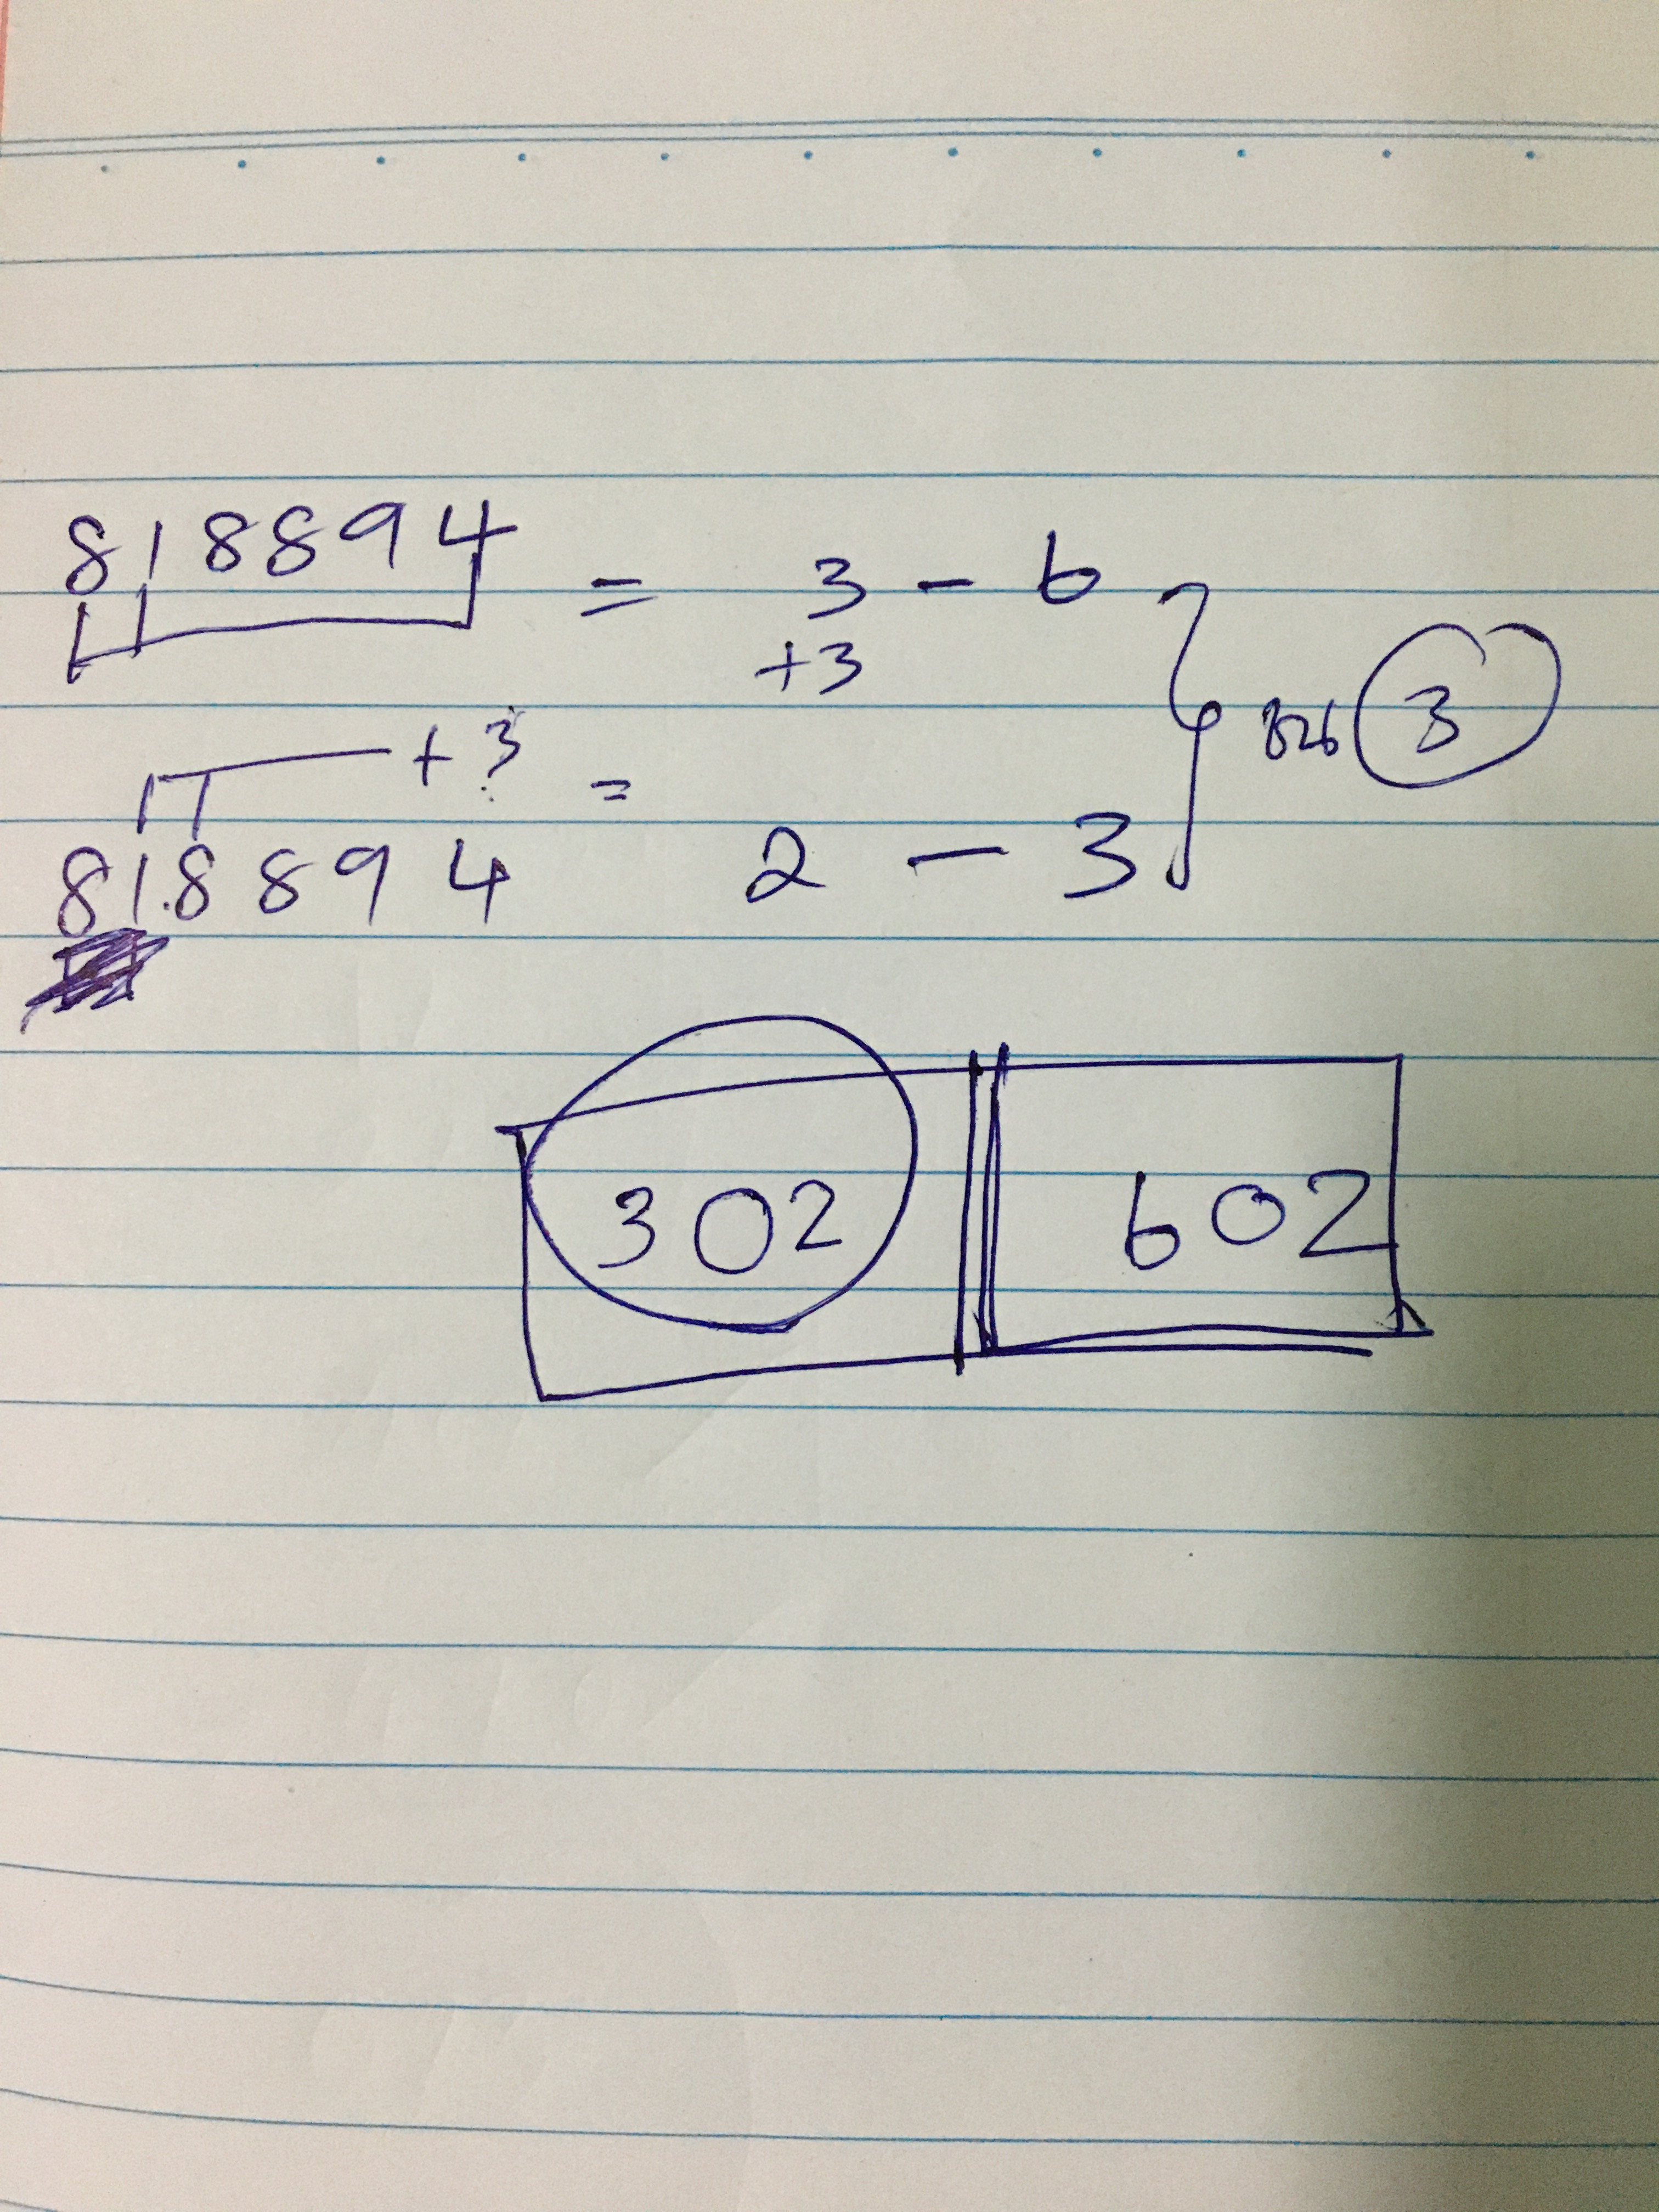 818894 = 3 - 6
+3
+3 = 3
818894 2 - 3
302 602